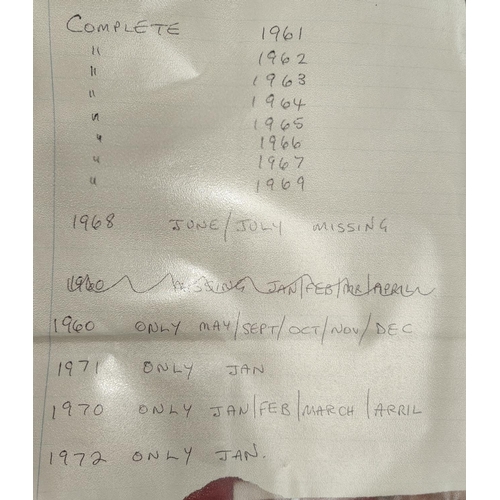 COMPLETE 1961
" 1962
" 1963
" 1964
" 1965
" 1966
" 1967
" 1969
1968 JUNE/JULY MISSING
1960 MISSING JAN/FEB/MR/APRIL
1960 ONLY MAY/SEPT/OCT/NOV/DEC
1971 ONLY JAN
1970 ONLY JAN/FEB/MARCH/APRIL
1972 ONLY JAN.